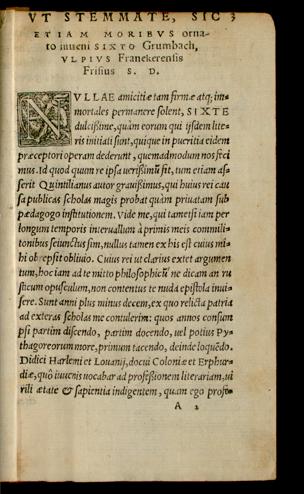 VT STEMMATE, SIC 3
ETIAM MORIBVS orna-
to iuueni SIXTO Grumbach,
VLPIVS Franekerensis
Frisius S. D.
NVLLAE amicitiæ tam firmæ atq; im-
mortales permanere solent, SIXTE
dulcißime, quàm eorum qui ijsdem lite-
ris initiati sunt, quique in pueritia eidem
præceptori operam dederunt, quemadmodum nos feci
mus. Id quod quum re ipsa uerißimũ sit, tum etiam aß-
serit Quintilianus autor grauißimus, qui huius rei cau
sa publicas scholas magis probat quàm priuatam sub
pædagogo institutionem. Vide me, qui tametsi iam per
longum temporis interuallum à primis meis commili-
tonibus seiunctus sim, nullus tamen ex his est cuius mi-
hi obrepsit obliuio. Cuius rei ut clarius extet argumen
tum, hoc iam ad te mitto philosophicũ ne dicam an ru
sticum opusculum, non contentus te nuda epistola inui-
sere. Sunt anni plus minus decem, ex quo relicta patria
ad exteras scholas me contulerim: quos annos consum
psi partim discendo, partim docendo, uel potius Py-
thagoreorum more, primum tacendo, deinde loquẽdo.
Didici Harlemi et Louanij, docui Coloniæ et Erphur-
diæ, quò iuuenis uocabar ad profeßionem literariam, ui
rili ætate & sapientia indigentem, quam ego profi-
A 2